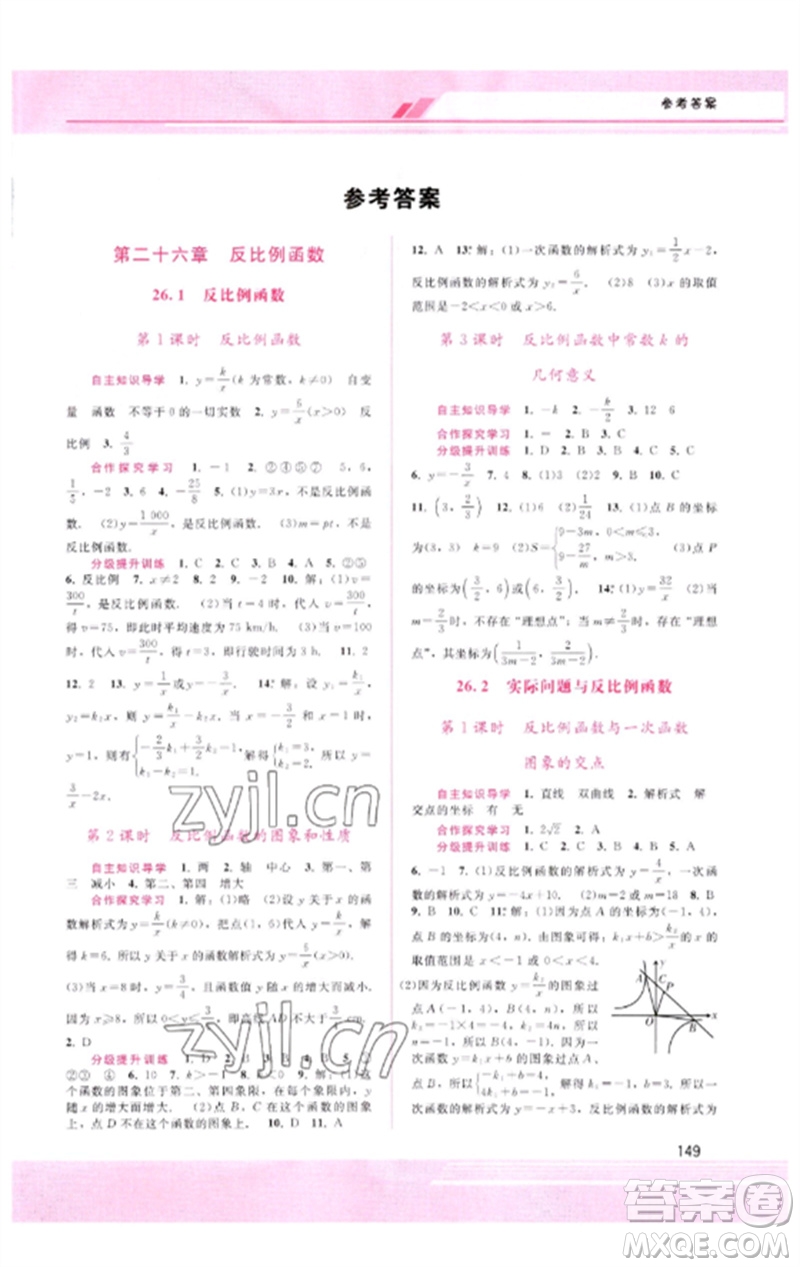 参考答案
参考答案
第二十六章 反比例函数
26.1 反比例函数
第1课时 反比例函数
自主知识导学 1. y=k/x(k 为常数,k≠0) 自变
量 函数 不等于0的一切实数 2. y=6/x(x>0) 反
比例 3. 4/3
合作探究学习 1. -1 2. ②④⑤⑦ 5,6,
1/5, 3. 6 4. -25/8 5. 解:(1)y=3x,不是反比例函
数. (2)y=1 000/x,是反比例函数. (3)m=pt,不是反
比例函数.
分级提升训练 1. C 2. C 3. B 4. A 5. ②⑤
6. 反比例 7. x≠2 8. 2 9. -2 10. 解:(1)v=
300/t,是反比例函数. (2)当 t=4 时,代入 v=300/t,得
v=75,即此时平均速度为 75 km/h. (3)当 v=100
时,代入 v=300/t,得 t=3,即行驶时间为 3 h. 11. 2
12. 2 13. y=1/x或y=-3/x 14. 解:设 y₁=k₁/x,
y₂=k₂x,则 y=k₁/x+k₂x. 当 x=-2/3和 x=1 时,
y=1,则有{-3/2k₁-2/3k₂=1, k₁+k₂=1. 解得{k₁=3, k₂=-2. 即 y=
3/x-2x.
第2课时 反比例函数的图象和性质
自主知识导学 1. 两 2. 轴 中心 3. 第一、第
三 减小 4. 第二、第四 增大
合作探究学习 1. 解:(1)略 (2)设 y 关于 x 的函
数解析式为 y=k/x(k≠0),把点(1,6)代入,得
k=6. 所以 y 关于 x 的函数解析式为 y=6/x(x>0).
(3)当 x=8 时,y=3/4,当函数值 y 随 x 的增大而减
小,所以 x≥8,即反高线至少为 3/4 cm.
2. D
分级提升训练 1. C 2. B 3. C 4. D 5. ①
②③ ④ 6. 10 7. > 8. <0 9. 解:(1)k<0,这
个函数的图象位于第二、第四象限,在每个象限内,y
随 x 的增大而增大. (2)点 B、C 在这个函数的图象
上,点 D 不在这个函数的图象上. 10. D 11. A
12. A 13. 解:(1)一次函数的解析式为 y₁=1/2x-2,
反比例函数的解析式为 y₂=6/x. (2)8 (3)x 的取值
范围是-2<x<0 或 x>6.
第3课时 反比例函数中常数 k 的
几何意义
自主知识导学 1. -k 2. -k/2 3. 12 6
合作探究学习 1. = 2. B 3. C
分级提升训练 1. D 2. B 3. B 4. C 5. C
6. y=-3/x 7. 4 8. (1)3 (2)2 9. B 10. C
11. (3,2/3) 12. (1)6 (2)1/24 13. (1)点 B 的坐标
为(3,3) k=9 (2)S={9-3m,0<m≤3, 9-27/m,m>3. (3)点 P
的坐标为(3/2,6)或(6,3/2). 14. (1)y=32/x (2)当
m=2/3时,不存在“理想点”;当 m≠2/3时,存在“理想
点”,其坐标为(1/3m-2,3/3m-2).
26.2 实际问题与反比例函数
第1课时 反比例函数与一次函数
图象的交点
自主知识导学 1. 直线 双曲线 2. 解析式 解
交点的坐标 有 无
合作探究学习 1. 2√2 2. A
分级提升训练 1. C 2. C 3. A 4. B 5. B
6. -1 7. (1)反比例函数的解析式为 y=4/x,一次函
数的解析式为 y=-4x+10. (2)m=2 或 m=18 8. B
9. B 10. C 11. 解:(1)因为点 A 的坐标为(-1,4),
点 B 的坐标为(4,n). 由图象可得:k₁x+b>k₂/x的 x 的
取值范围是 x<-1 或 0<x<4.
(2)因为反比例函数 y=k₂/x的图象过
点 A(-1,4)、B(4,n),所以
k₂=-1×4=-4,k₂=4n,所以
n=-1,所以 B(4,-1). 因为一次
函数 y=k₁x+b 的图象过点 A,
点 B,所以{-k₁+b=4, 4k₁+b=-1. 解得 k₁=-1,b=3. 所以
一次函数的解析式为 y=-x+3,反比例函数解析式为
149
zyjl.cn
zyjl.cn
答案卷
MXQE.COM